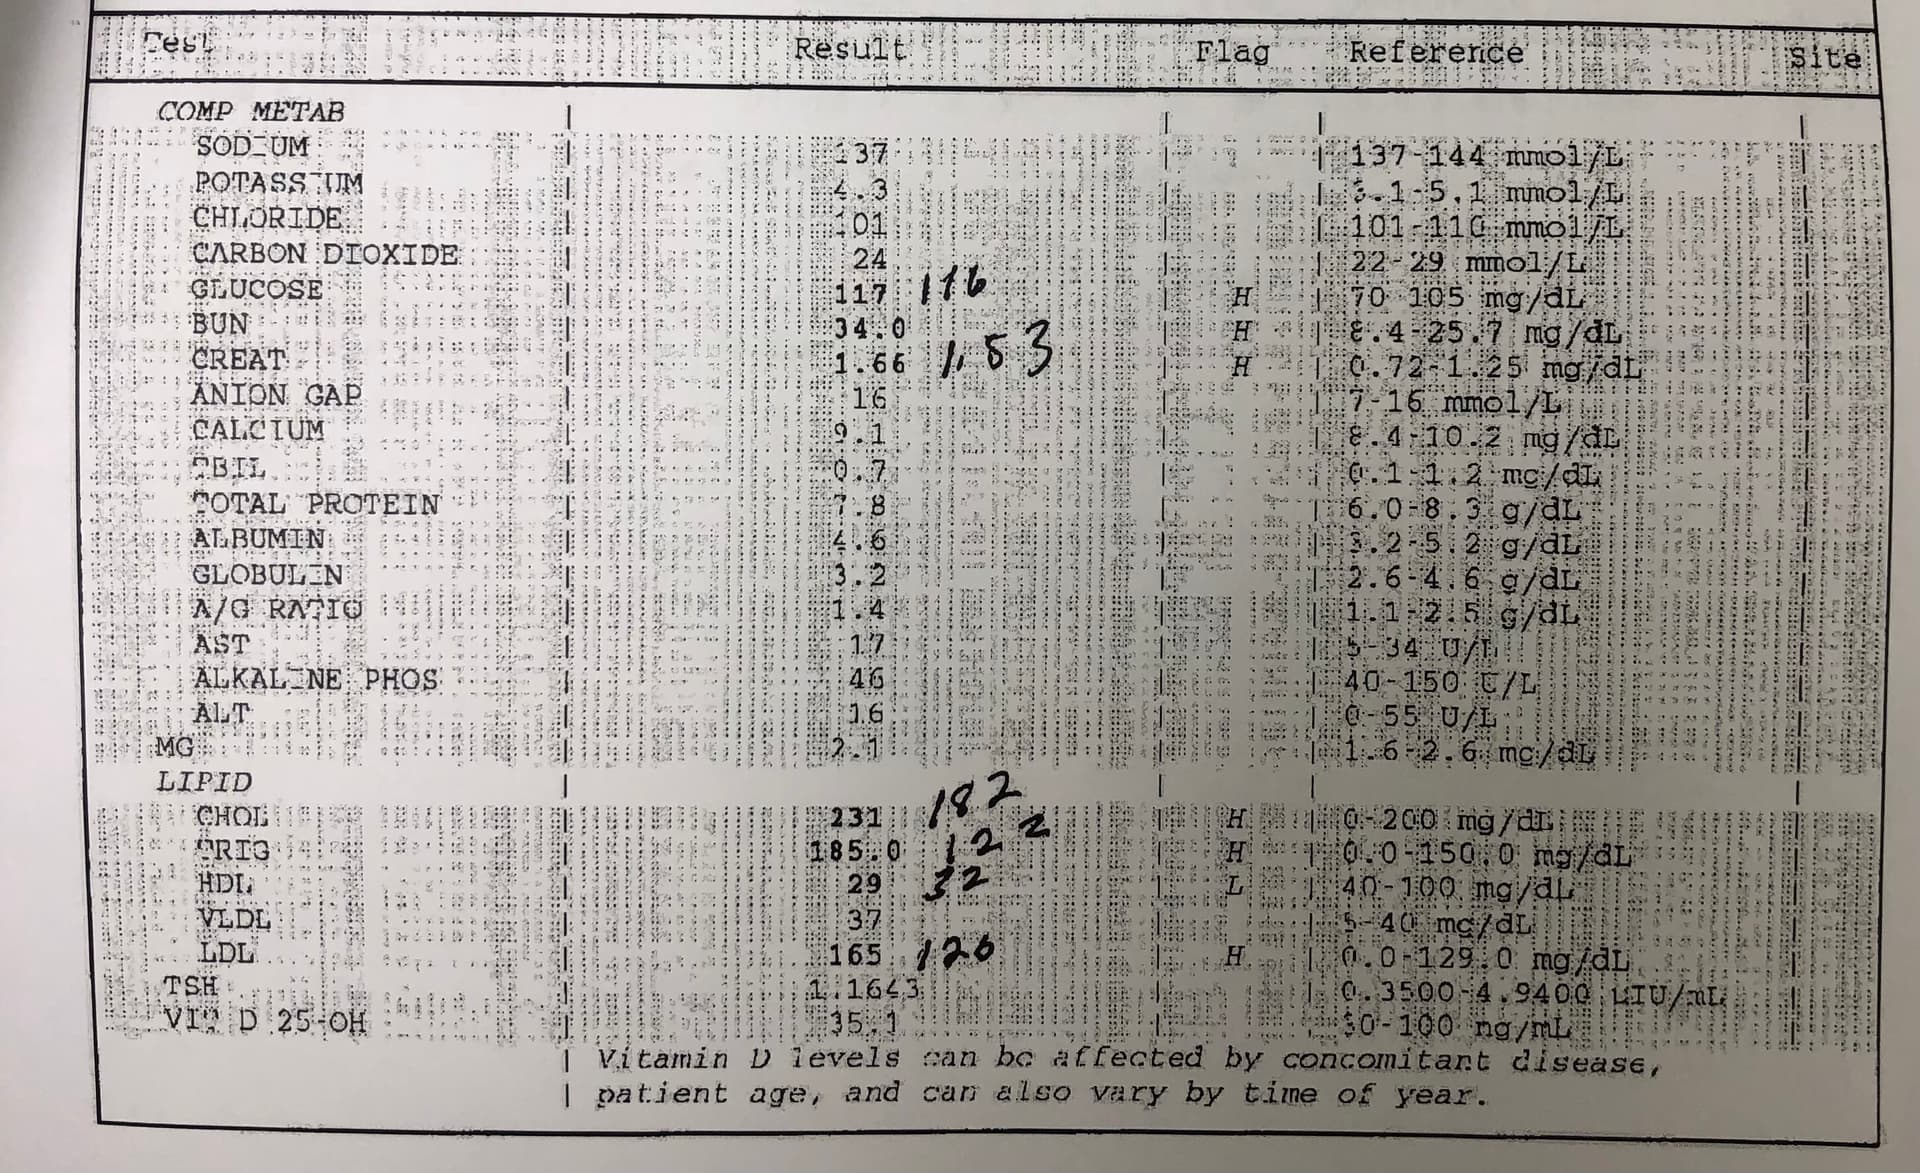 Test Result Flag Reference Site
COMP METAB
SODIUM 137 137-144 mmol/L
POTASSIUM 4.3 3.1-5.1 mmol/L
CHLORIDE 101 101-110 mmol/L
CARBON DIOXIDE 24 22-29 mmol/L
GLUCOSE 117 116 H 70 105 mg/dL
BUN 34.0 H 8.4-25.7 mg/dL
CREAT 1.66 1.53 H 0.72-1.25 mg/dL
ANION GAP 16 7-16 mmol/L
CALCIUM 9.1 8.4-10.2 mg/dL
TBIL 0.7 0.1-1.2 mg/dL
TOTAL PROTEIN 7.8 6.0-8.3 g/dL
ALBUMIN 4.6 3.2-5.2 g/dL
GLOBULIN 3.2 2.6-4.6 g/dL
A/G RATIO 1.4 1.1-2.5 g/dL
AST 17 5-34 U/L
ALKALINE PHOS 46 40-150 U/L
ALT 16 0-55 U/L
MG 2.1 1.6-2.6 mg/dL
LIPID
CHOL 231 182 H 0-200 mg/dL
TRIG 185.0 122 H 0.0-150.0 mg/dL
HDL 29 32 L 40-100 mg/dL
VLDL 37 5-40 mg/dL
LDL 165 126 H 0.0-129.0 mg/dL
TSH 1.1643 0.3500-4.9400 uIU/mL
VIT D 25-OH 35.1 30-100 ng/mL
Vitamin D levels can be affected by concomitant disease,
patient age, and can also vary by time of year.